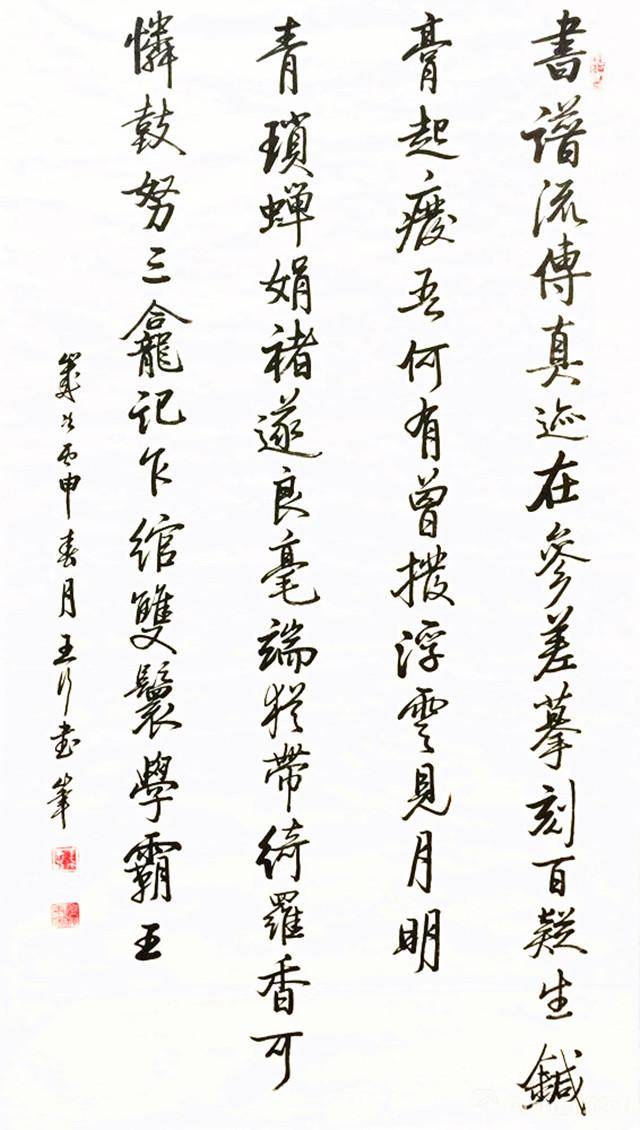 書譜流傳真迹在參差摹刻百疑生鍼
膏起癈吾何有曾撥浮雲見月明
青瑣蟬娟褚遂良毫端猶帶綺羅香可
憐鼓努三龕記乍綰雙鬟學霸王
歲次丙申春月王行書